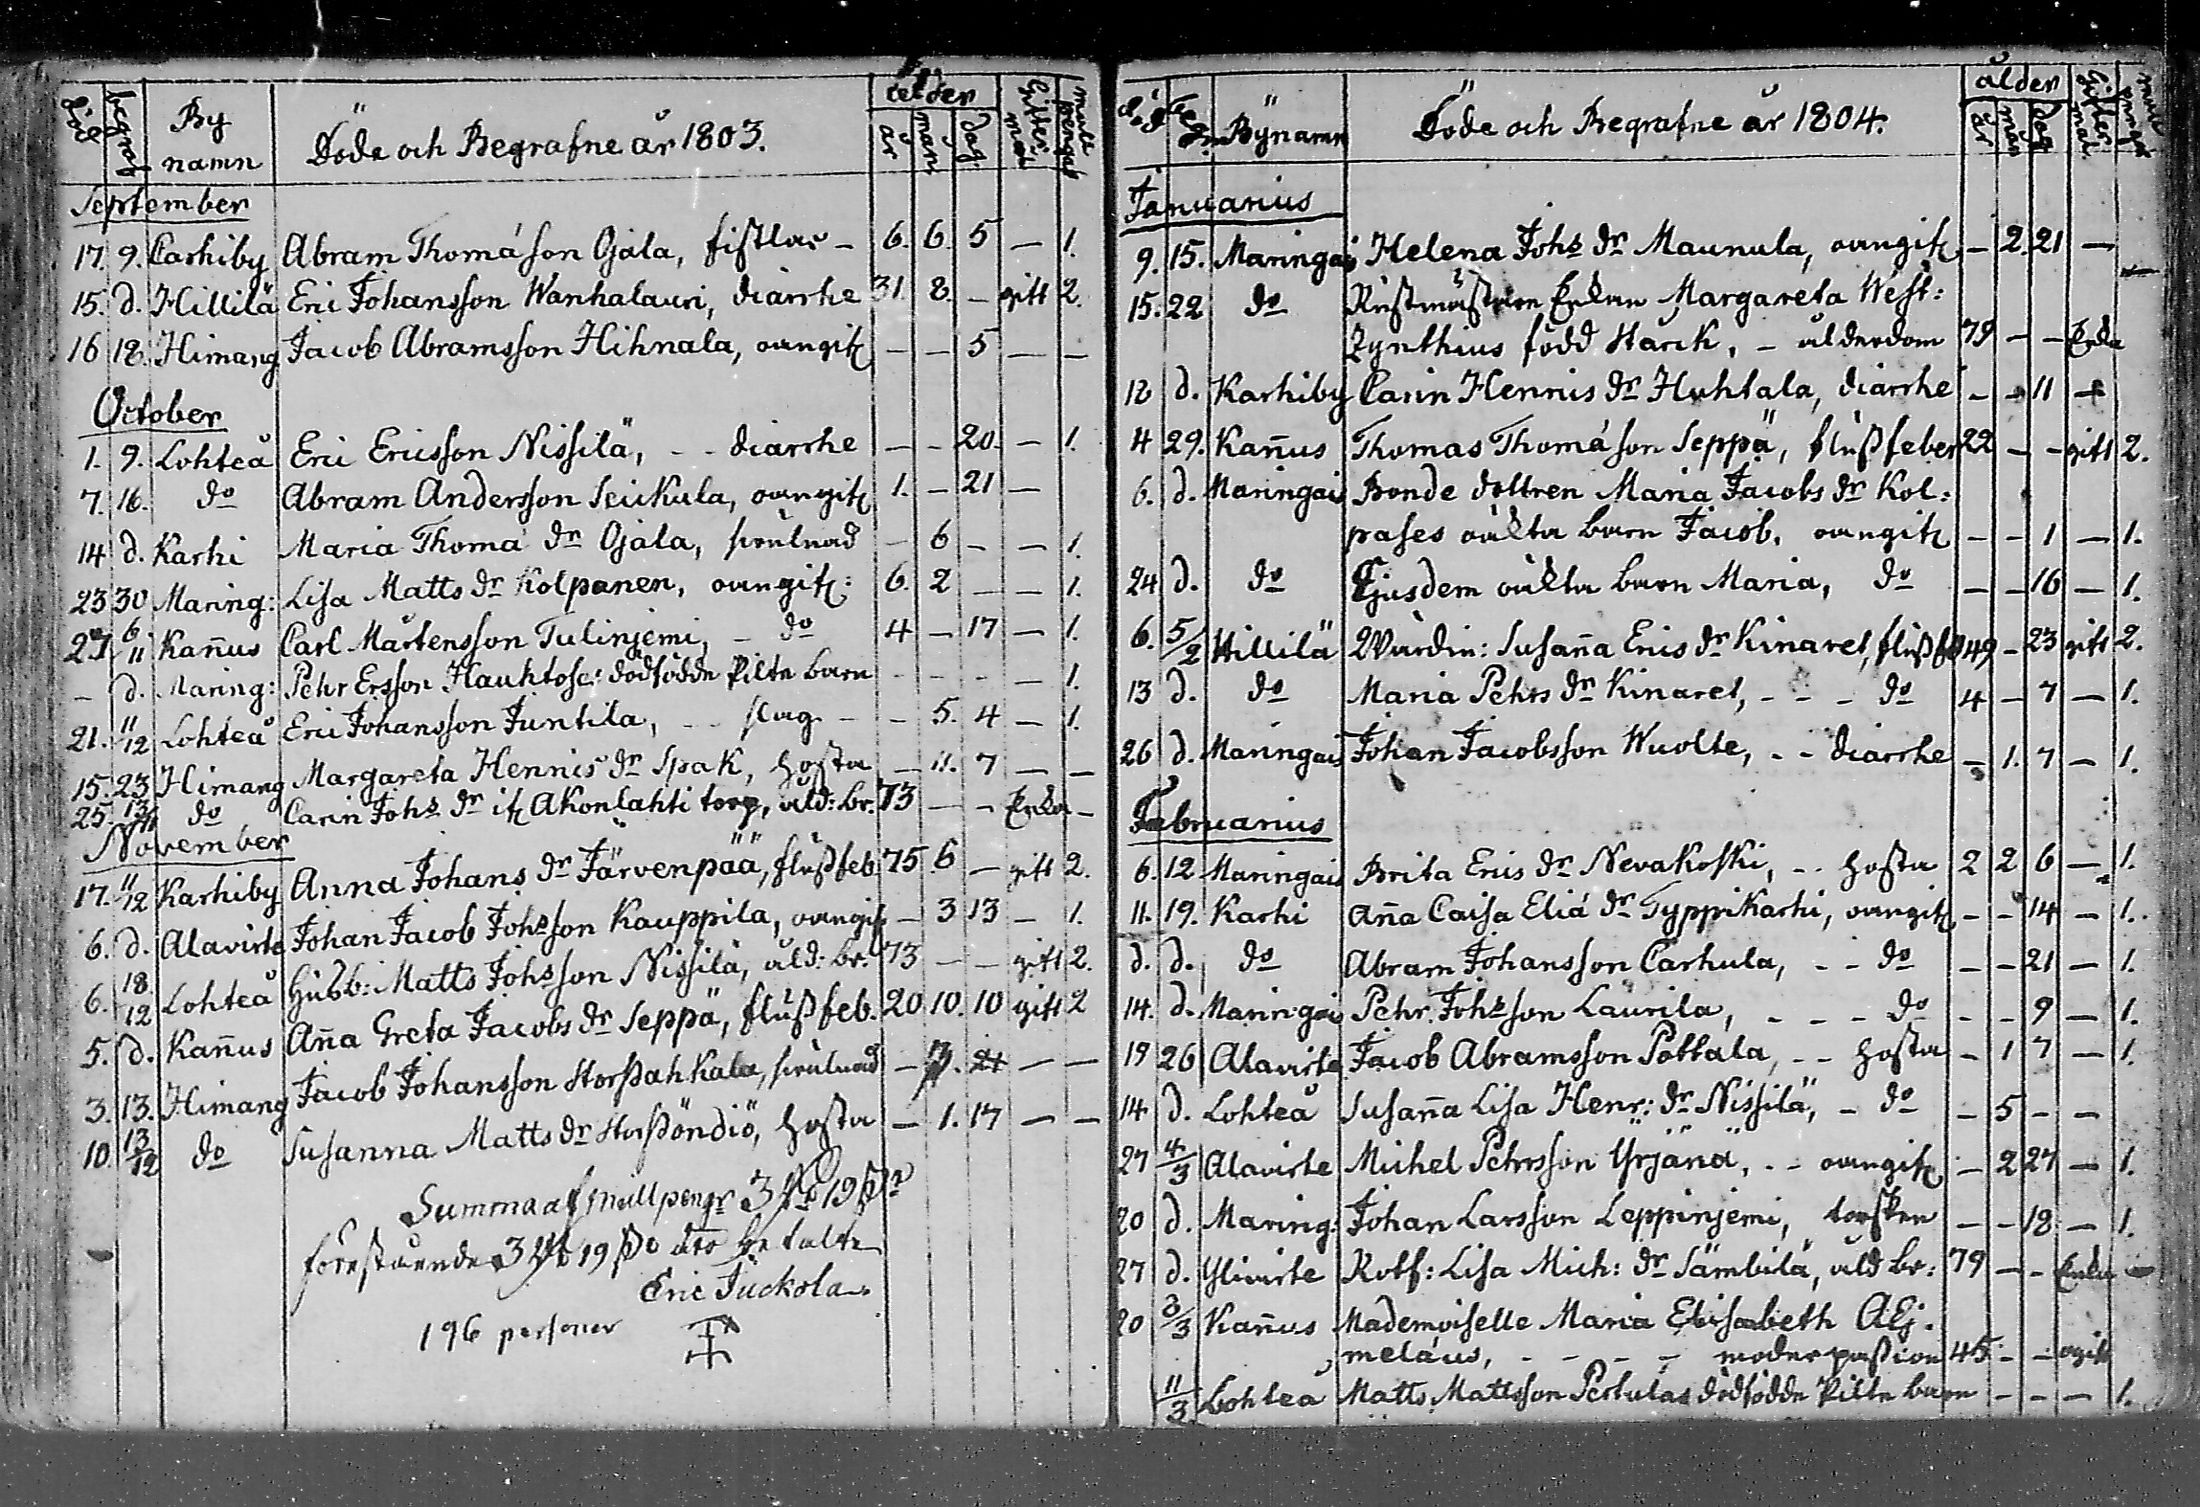 död begraf By namn Döde och Begrafne år 1803. ålder år mån dag Giftermål mullpengar
September
17. 9. Carhiby Abram Thomæson Ojala, fistlar - 6. 6. 5 - 1.
15. d. Hillilä Eric Johansson Wanhalauri, diarrhe 31. 8. - gift 2.
16 18. Himang Jacob Abramsson Hihnala, oangifz - - 5 - -
October
1. 9. Lohteå Eric Ericsson Nissilä, - - diarrhe - - 20. - 1.
7. 16. do Abram Andersson Seickula, oangifz 1. - 21 -
14 d. Karhi Maria Thomæ dr Ojala, svulnad - 6 - - 1.
23 30 Maring: Lisa Matts dr Kolpanen, oangifz: 6. 2 - - 1.
27 6/11 Kan̄us Carl Mårtensson Tulinjemi, - do 4 - 17 - 1.
- d. Maring: Pehr Ersson Hauhtose: dödfödde Pilte barn - - - - 1.
21. 11/12 Lohteå Eric Johansson Juntila, - - slag - - 5. 4 - 1.
15. 23 Himang Margareta Hennis dr Spak, hosta - 11. 7 - -
25. 13/11 do Carin Johs dr ifz Akonlahti torp, åld: br. 73 - - Enka -
November
17. 11/12 Karhiby Anna Johans dr Järvenpää, flussfeb. 75 6 - gift 2.
6. d. Alavirte Johan Jacob Johsson Kauppila, oangifz - 3 13 - 1.
6. 18/12 Lohteå Husb: Matts Johsson Nissilä, åld: br. 73 - - gift 2.
5. d. Kan̄us An̄a Greta Jacobs dr Seppä, flussfeb. 20 10. 10 gift 2
3. 13. Himang Jacob Johansson Storpahkala, svulnad - . 24 - -
10. 13/12 do Susanna Matts dr Storpöndiö, hosta - 1. 17 - -
Summa af mullpengr 3 19
förestående 3 19 äro betalte
Eric Juckola
196 personer
död begr. Bynamn Döde och Begrafne år 1804. ålder år mån dag Giftermål mullpengar
Januarius
9. 15. Maringais Helena Johs dr Maunula, oangifz - 2. 21 -
15. 22 do Rustmästare Enkan Margareta West:
Zynthius född Starck, - ålderdom 79 - - Enka
12 d. Karhiby Carin Hennis dr Huhtala, diarrhe - - 11 -
4 29. Kan̄us Thomas Thomæson Seppä, flussfeber 22 - - gift 2.
6. d. Maringais Bonde dottren Maria Jacobs dr Kol:
pases oäkta barn Jacob, oangifz - - 1 - 1.
24 d. do Ejusdem oäkta barn Maria, do - - 16 - 1.
6. 5/2 Hillilä Wärdin: Susan̄a Erics dr Kinaret, flussfeb 49 - 23 gift 2.
13 d. do Maria Pehrs dr Kinaret, - - - do 4 - 7 - 1.
26 d. Maringais Johan Jacobsson Wuolte, - - diarrhe - 1. 7 - 1.
Februarius
6. 12 Maringais Brita Erics dr Nevakoski, - - hosta 2 2 6 - 1.
11. 19. Karhi An̄a Caisa Eliæ dr Typpikarhi, oangifz - - 14 - 1.
d. d. do Abram Johansson Carhula, - - do - - 21 - 1.
14. d. Maringais Pehr Johsson Laurila, - - - do - - 9 - 1.
19 26 Alavirte Jacob Abramsson Pottala, - - hosta - 1 7 - 1.
14 d. Lohteå Susan̄a Lisa Henr: dr Nissilä, - do - 5 - -
27 4/3 Alavirte Michel Pehrsson Yrjänä, - - oangifz - 2 27 - 1.
20 d. Maring: Johan Larsson Leppinjemi, torsken - - 18 - 1.
27 d. Ylivirte Rotf: Lisa Mich: dr Sämbilä, åld br: 79 - - Enka -
20 /3 Kan̄us Mademoiselle Maria Elisabeth AEj.
melæus, - - - - moderpassion 45 - - ogift
11/3 Lohteå Matts Mattsson Pertulas dödfödde Pilte barn - - - 1.